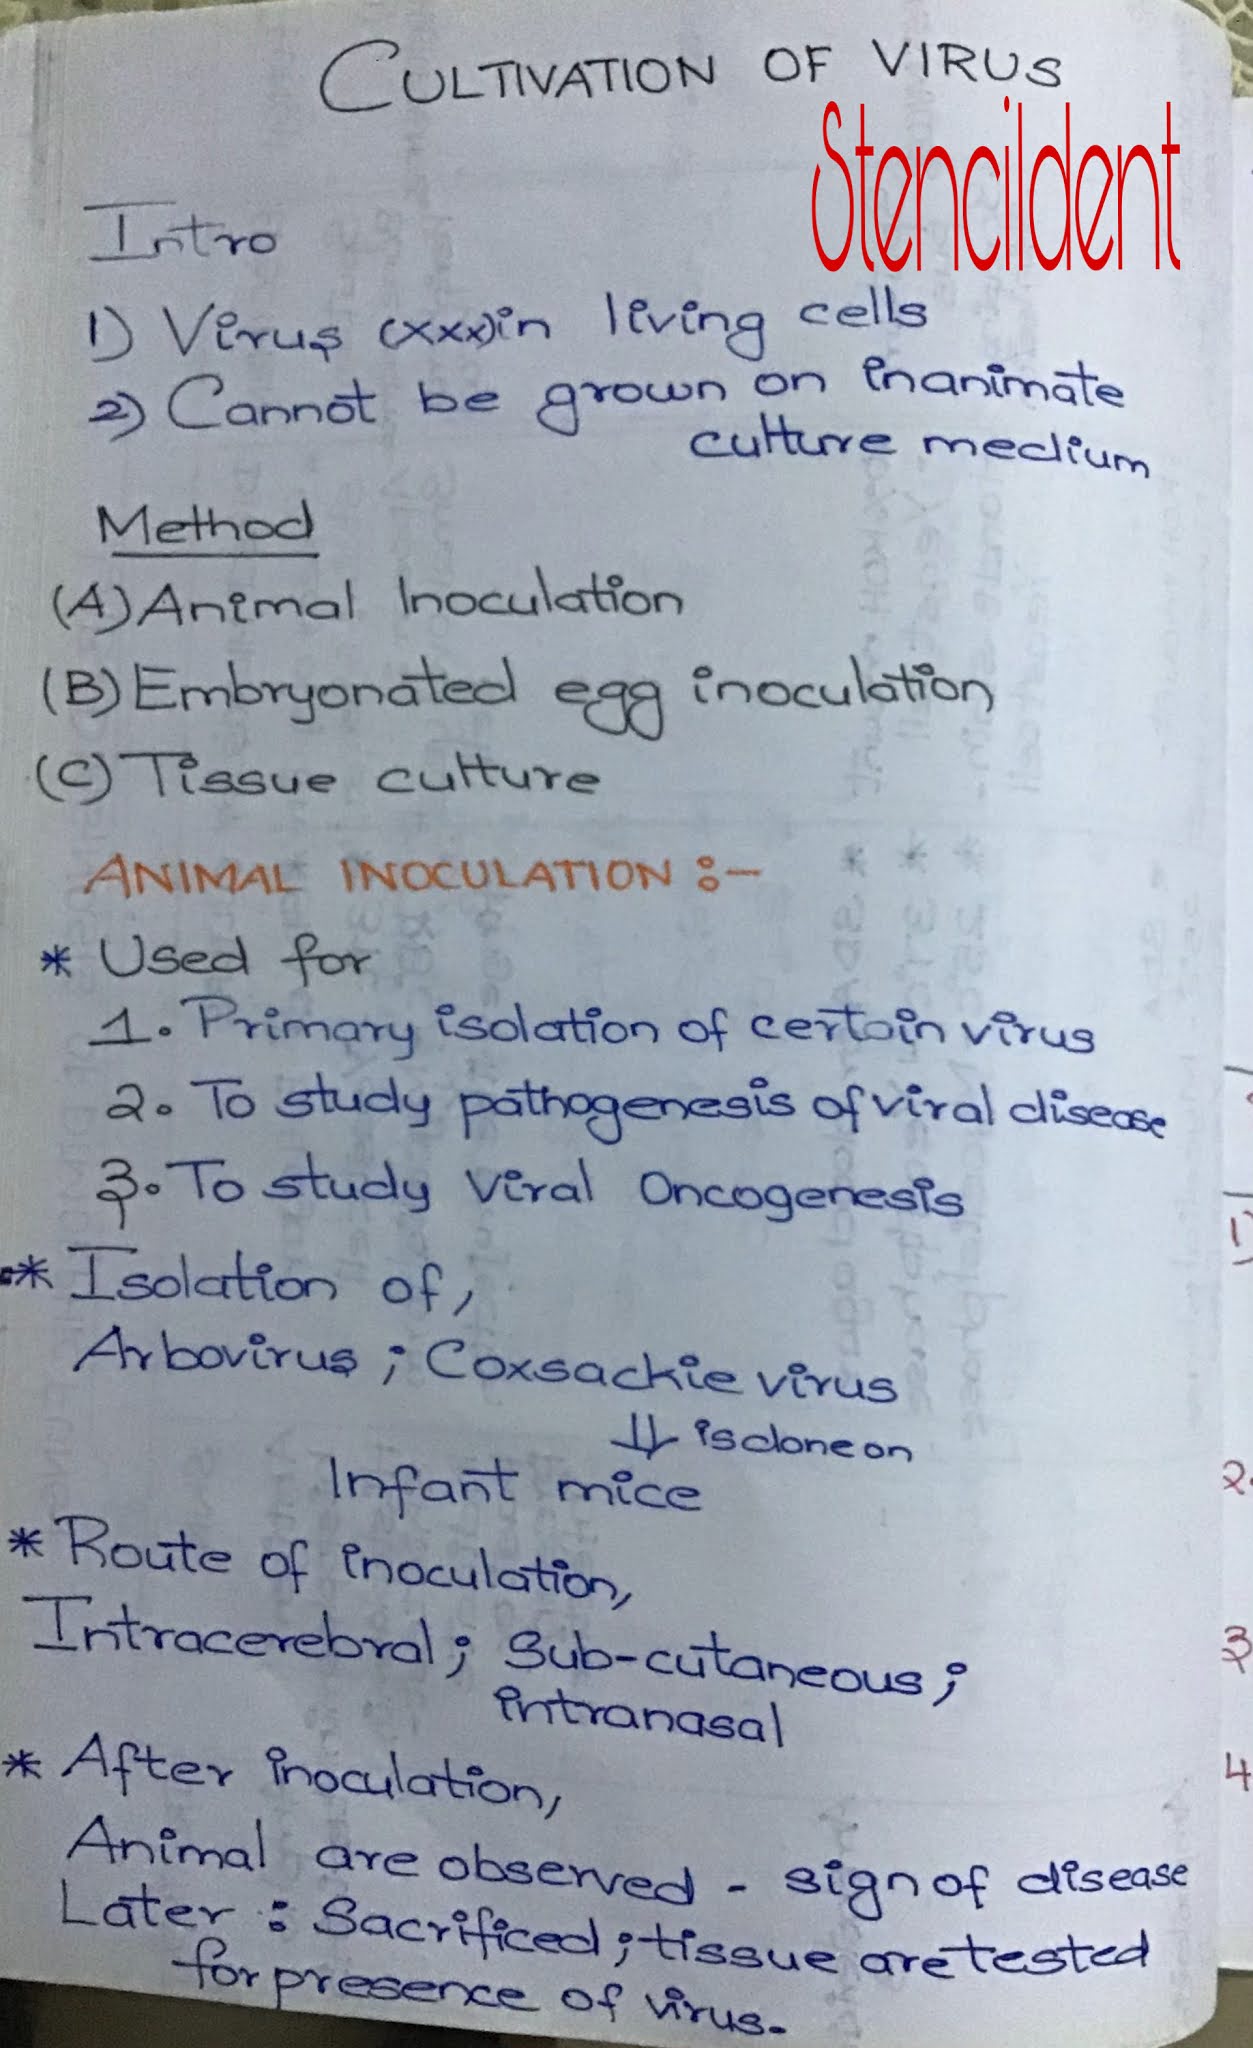 CULTIVATION OF VIRUS
Stencildent
Intro
1) Virus (xxx) in living cells
2) Cannot be grown on inanimate
culture medium
Method
(A) Animal Inoculation
(B) Embryonated egg inoculation
(C) Tissue culture
ANIMAL INOCULATION :-
* Used for
1. Primary isolation of certain virus
2. To study pathogenesis of viral disease
3. To study viral Oncogenesis
* Isolation of,
Arbovirus ; Coxsackie virus
⇓ is done on
Infant mice
* Route of inoculation,
Intracerebral ; Sub-cutaneous ;
intranasal
* After inoculation,
Animal are observed - sign of disease
Later : Sacrificed ; tissue are tested
for presence of virus.
1)
2.
3
4